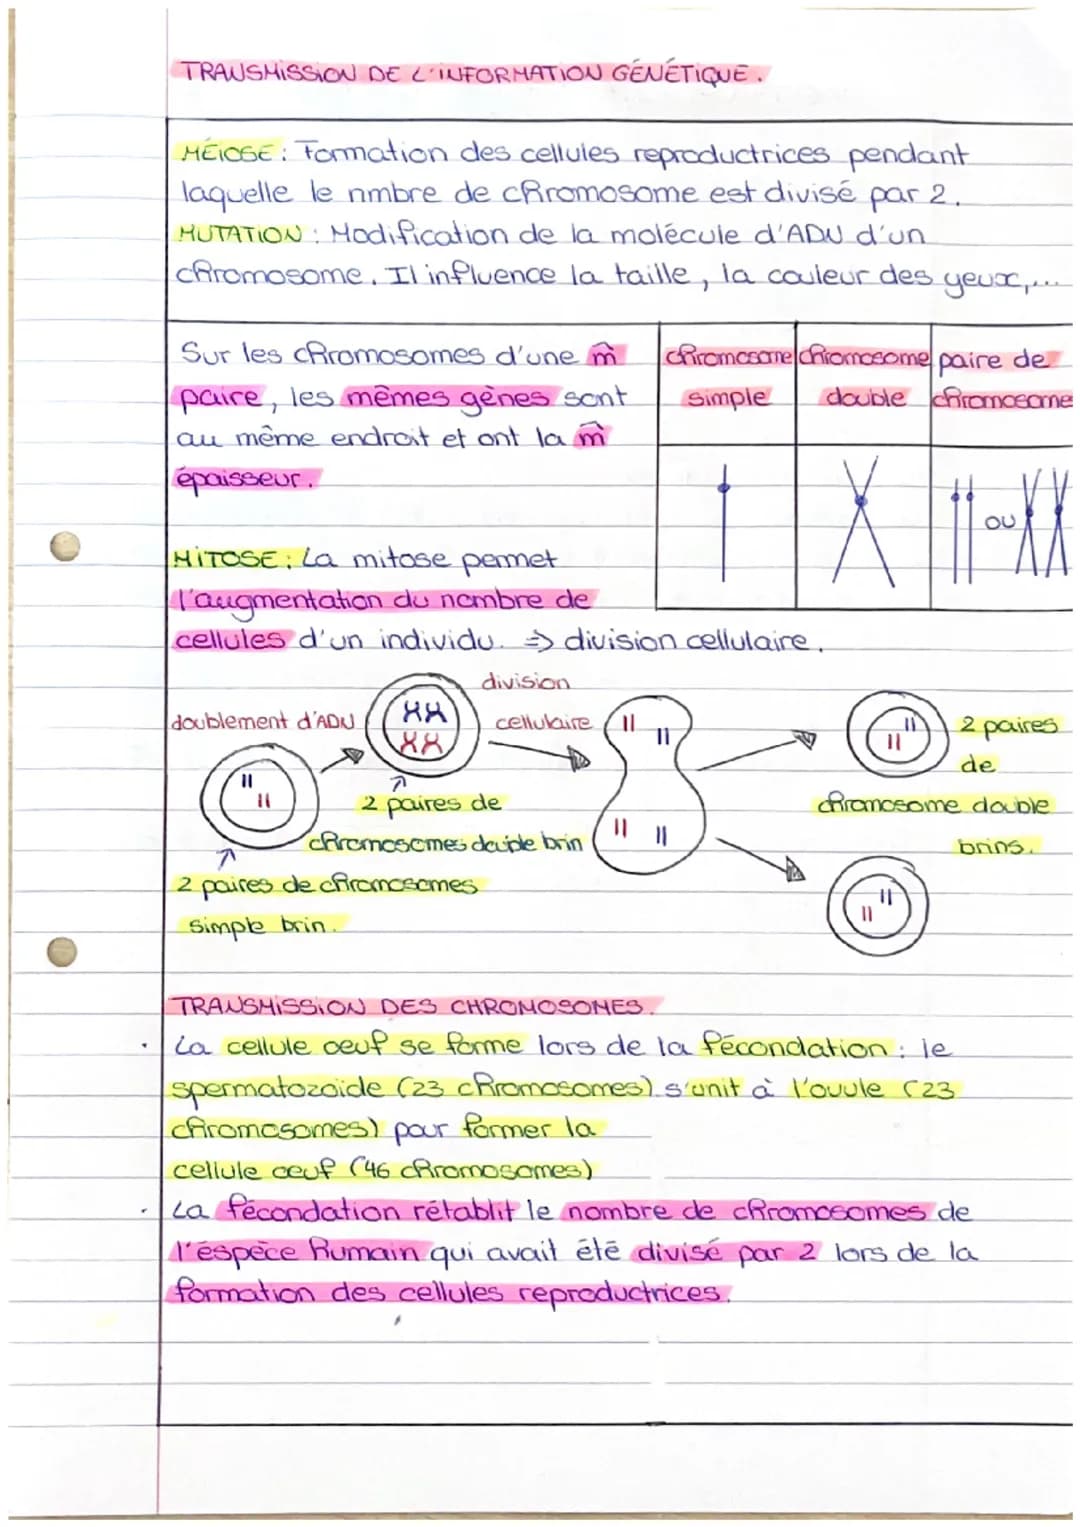 TRANSMISSION DE L'INFORMATION GÉNÉTIQUE.
MÉIOSE : Formation des cellules reproductrices pendant
laquelle le nmbre de chromosome est divisé par 2.
MUTATION : Modification de la molécule d'ADN d'un
chromosome. Il influence la taille, la couleur des yeux,...
Sur les chromosomes d'une m̂
paire, les mêmes gènes sont
au même endroit et ont la m̂
épaisseur.
chromosome simple
chromosome double
paire de chromosome
OU
MITOSE : La mitose permet
l'augmentation du nombre de
cellules d'un individu. => division cellulaire.
doublement d'ADN
division
cellulaire
2 paires de
chromosomes double brin
2 paires de chromosomes
simple brin.
2 paires
de
chromosome double
brins.
TRANSMISSION DES CHROMOSOMES.
La cellule oeuf se forme lors de la fécondation : le
spermatozoide (23 chromosomes) s'unit à l'ovule (23
chromosomes) pour former la
cellule oeuf (46 chromosomes)
La fécondation rétablit le nombre de chromosomes de
l'éspèce humain qui avait été divisé par 2 lors de la
formation des cellules reproductrices.